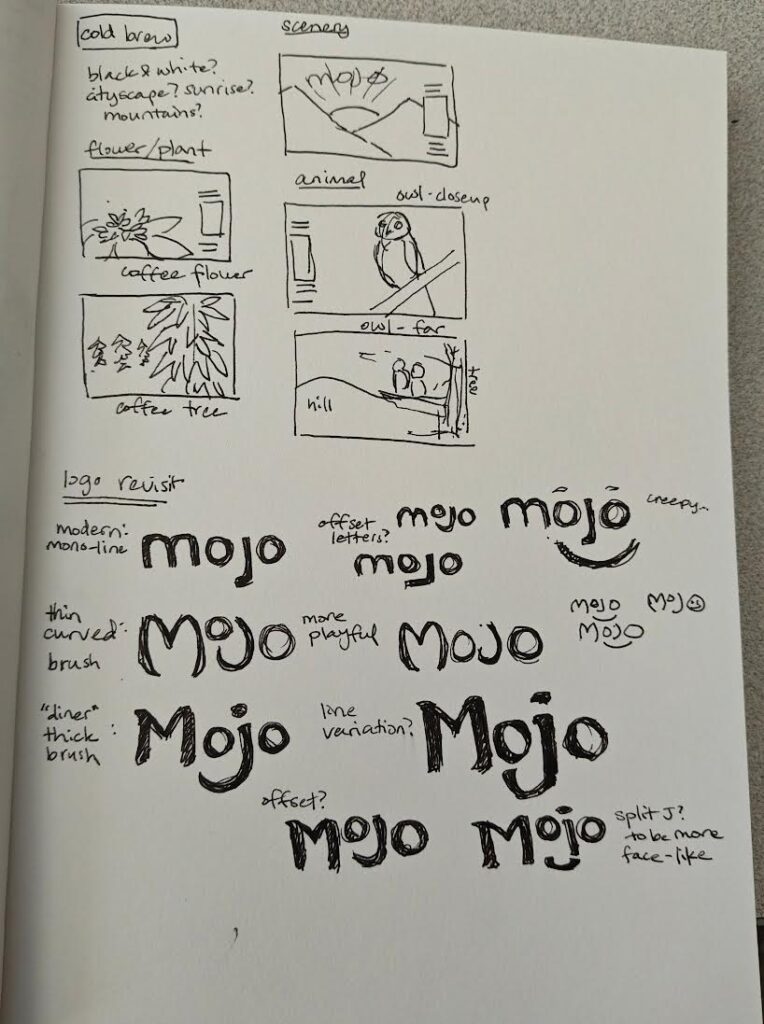 cold brew
black & white?
cityscape? sunrise?
mountains?
flower/plant
coffee flower
coffee tree
scenery
mojo
animal
owl-closeup
owl-far
hill
tree
logo revisit
modern:
mono-line
mojo
offset
letters?
mojo
mojo
mojo
creepy...
thin
curved:
brush
Mojo
more
playful
Mojo
mojo
Mojo
Mojo
"diner"
thick :
brush
Mojo
line
variation?
Mojo
offset?
Mojo
Mojo
split J?
to be more
face-like